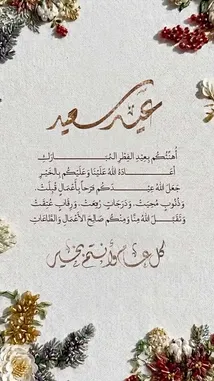 عيد سعيد
أُهَنِّئُكُم بِعِيدِ الفِطْرِ المُبَارَكِ
أَعَادَهُ اللهُ عَلَيْنَا وَعَلَيْكُم بِالخَيْرِ
جَعَلَ اللهُ عِيدَكُم فَرَحاً بِأَعْمَالٍ قُبِلَتْ،
وَذُنُوبٍ مُحِيَتْ، وَدَرَجَاتٍ رُفِعَتْ، وَرِقَابٍ عُتِقَتْ
وَتَقَبَّلَ اللهُ مِنَّا وَمِنكُم صَالِحَ الأَعْمَالِ وَالطَّاعَاتِ
كل عام وأنتم بخير